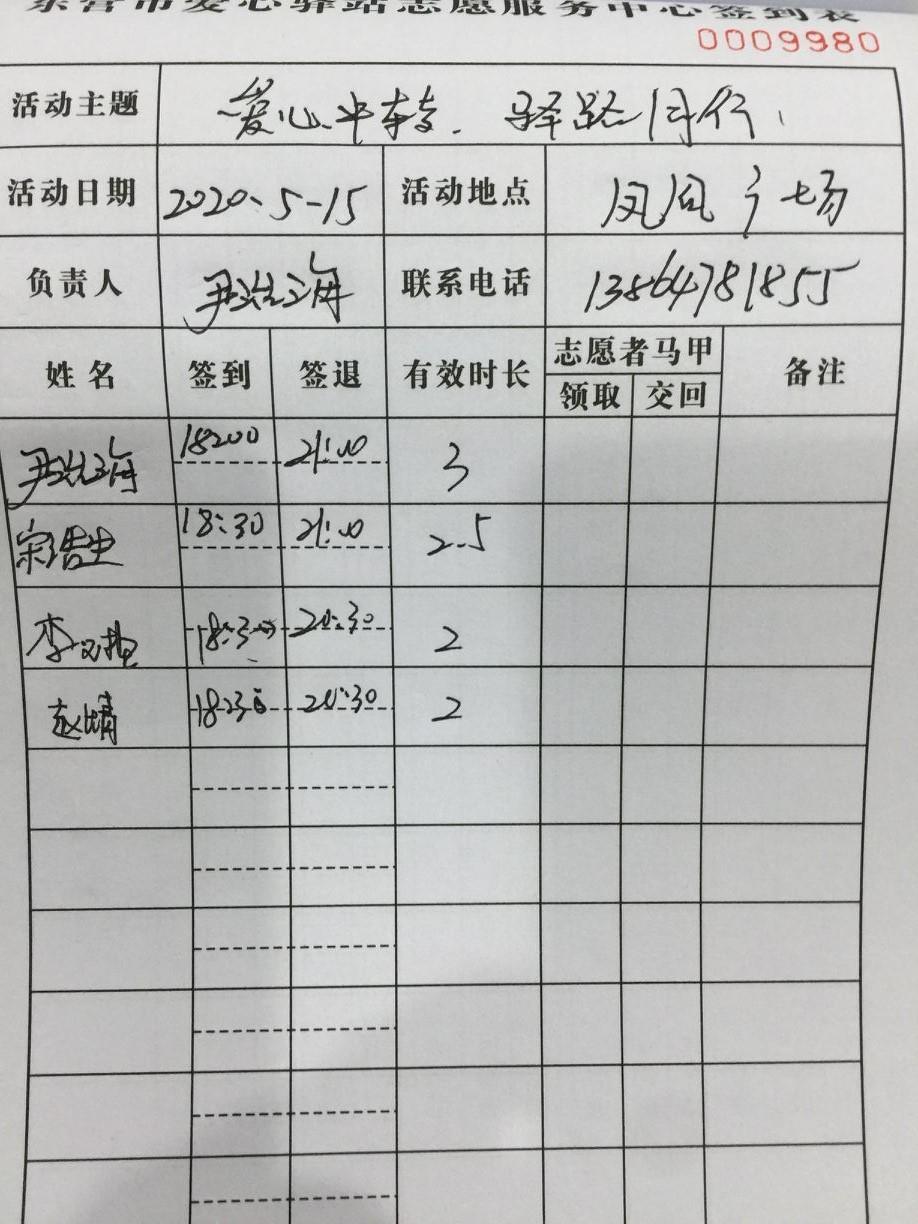 东营市爱心驿站志愿服务中心签到表
0009980
活动主题 爱心中转、驿路同行
活动日期 2020、5-15 活动地点 凤凰广场
负责人 尹治海 联系电话 13864781855
姓名 签到 签退 有效时长 志愿者马甲 备注
领取 交回
尹治海 18:00 21:00 3
宋浩生 18:30 21:00 2.5
李 18:30 20:30 2
赵婧 18:30 20:30 2